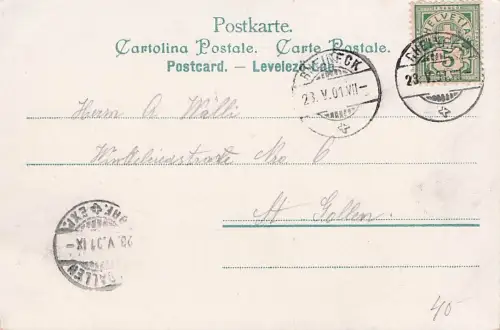 Postkarte.
Cartolina Postale. Carte Postale.
Postcard. – Levelező-Lap.
HELVETIA
5
RHEINECK
23.V.01.VII–
RHEINECK
23.V.
Herrn A Wälli
Winkelriedstrasse No 6
St. Gallen.
GALLEN
23.V.01.IX–
40-